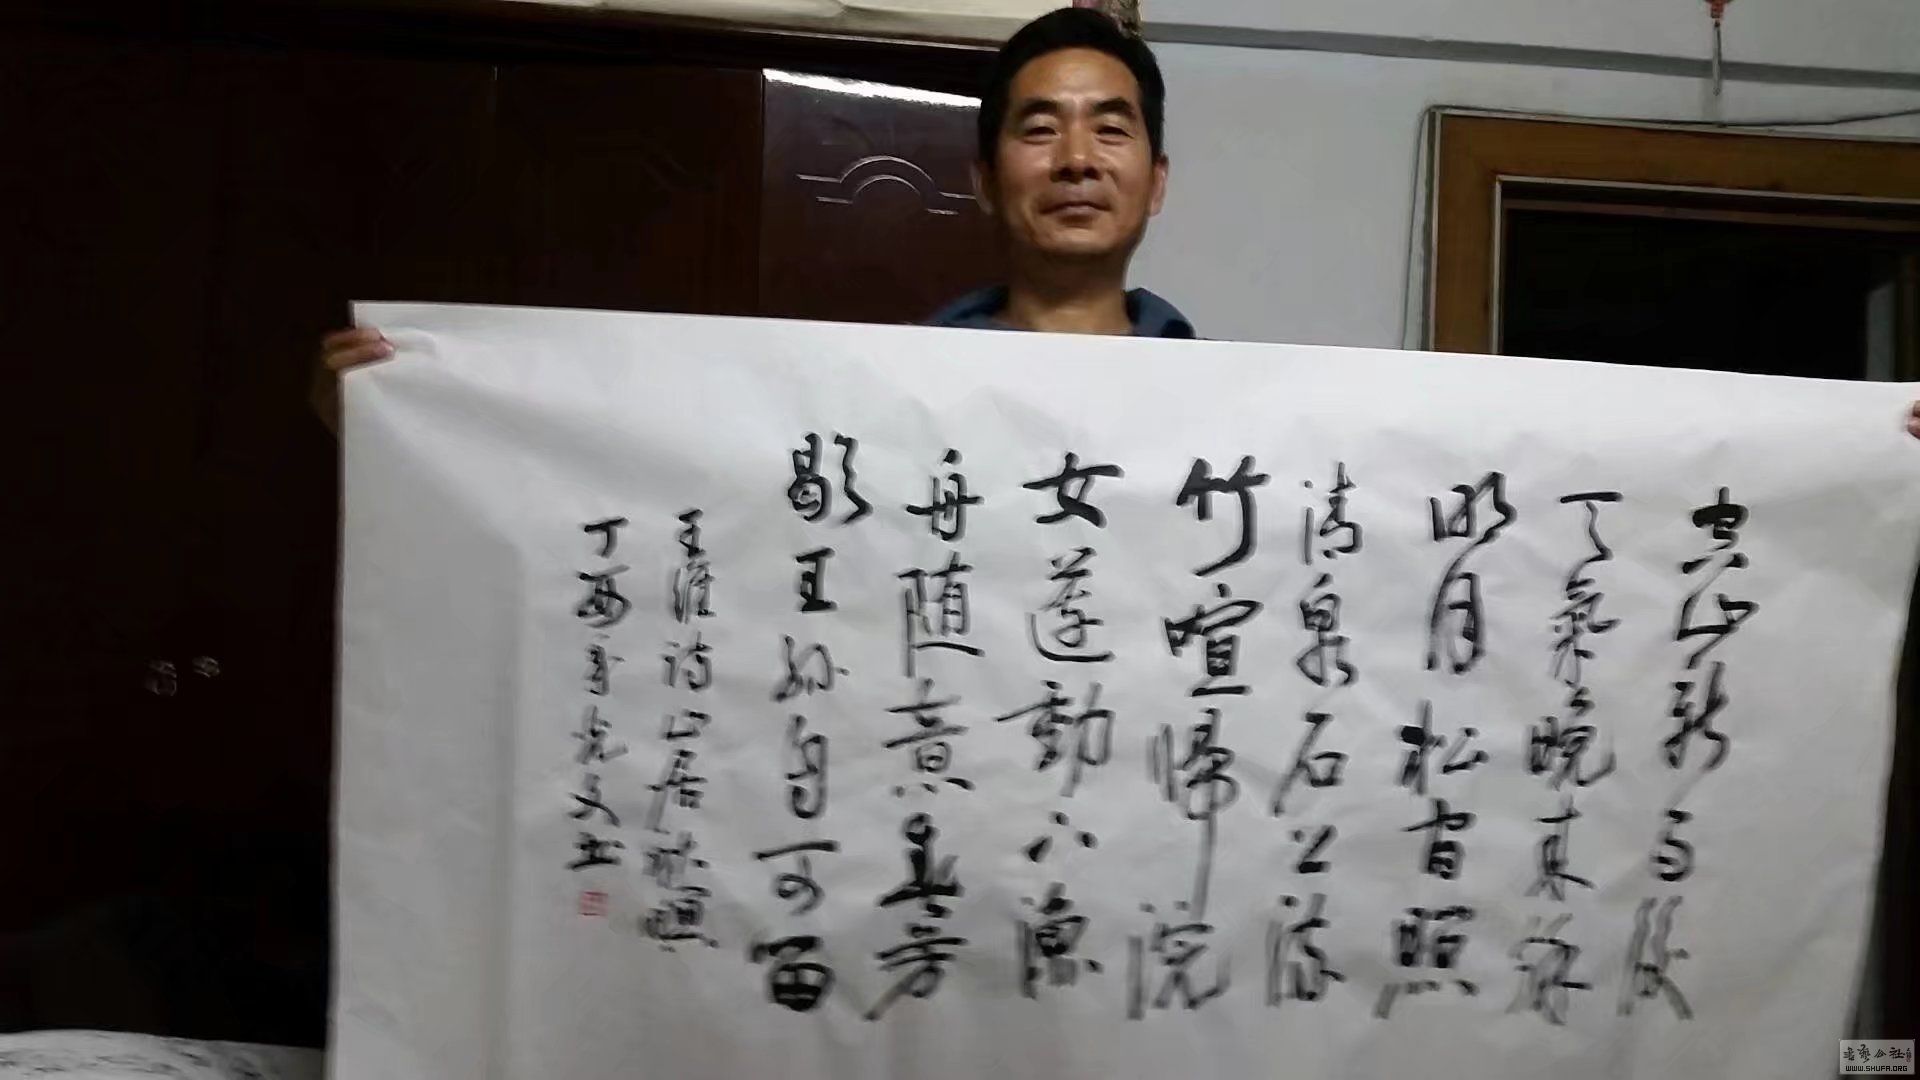 空山新雨後
天氣晚来秋
明月松间照
清泉石上流
竹喧歸浣
女莲動下漁
舟随意春芳
歇王孙自可留
王維诗山居秋暝
丁酉年
WWW.SHUFA.ORG